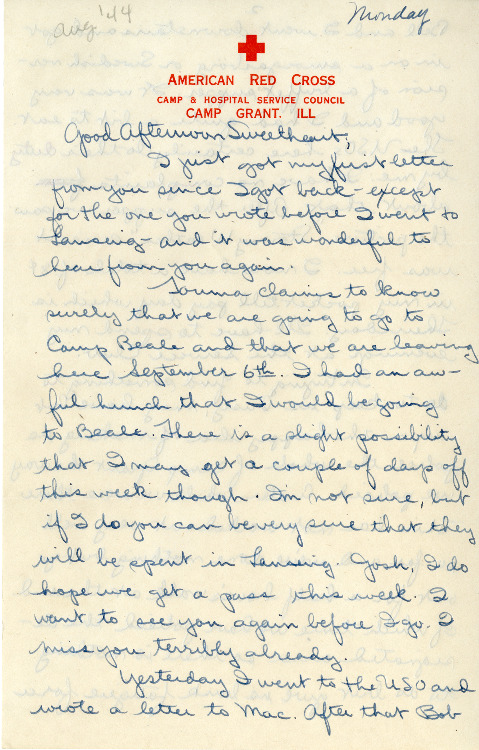 Aug '44
Monday
AMERICAN RED CROSS
CAMP & HOSPITAL SERVICE COUNCIL
CAMP GRANT. ILL
Good Afternoon Sweetheart,
I just got my first letter
from you since I got back - except
for the one you wrote before I went to
Lansing - and it was wonderful to
hear from you again.
Toumar claims to know
surely that we are going to go to
Camp Beale and that we are leaving
here September 6th. I had an aw-
ful hunch that I would be going
to Beale. There is a slight possibility
that I may get a couple of days off
this week though. I'm not sure, but
if I do you can be very sure that they
will be spent in Lansing. Gosh, I do
hope we get a pass this week. I
want to see you again before I go. I
miss you terribly already.
Yesterday I went to the USO and
wrote a letter to Mac. After that Bob